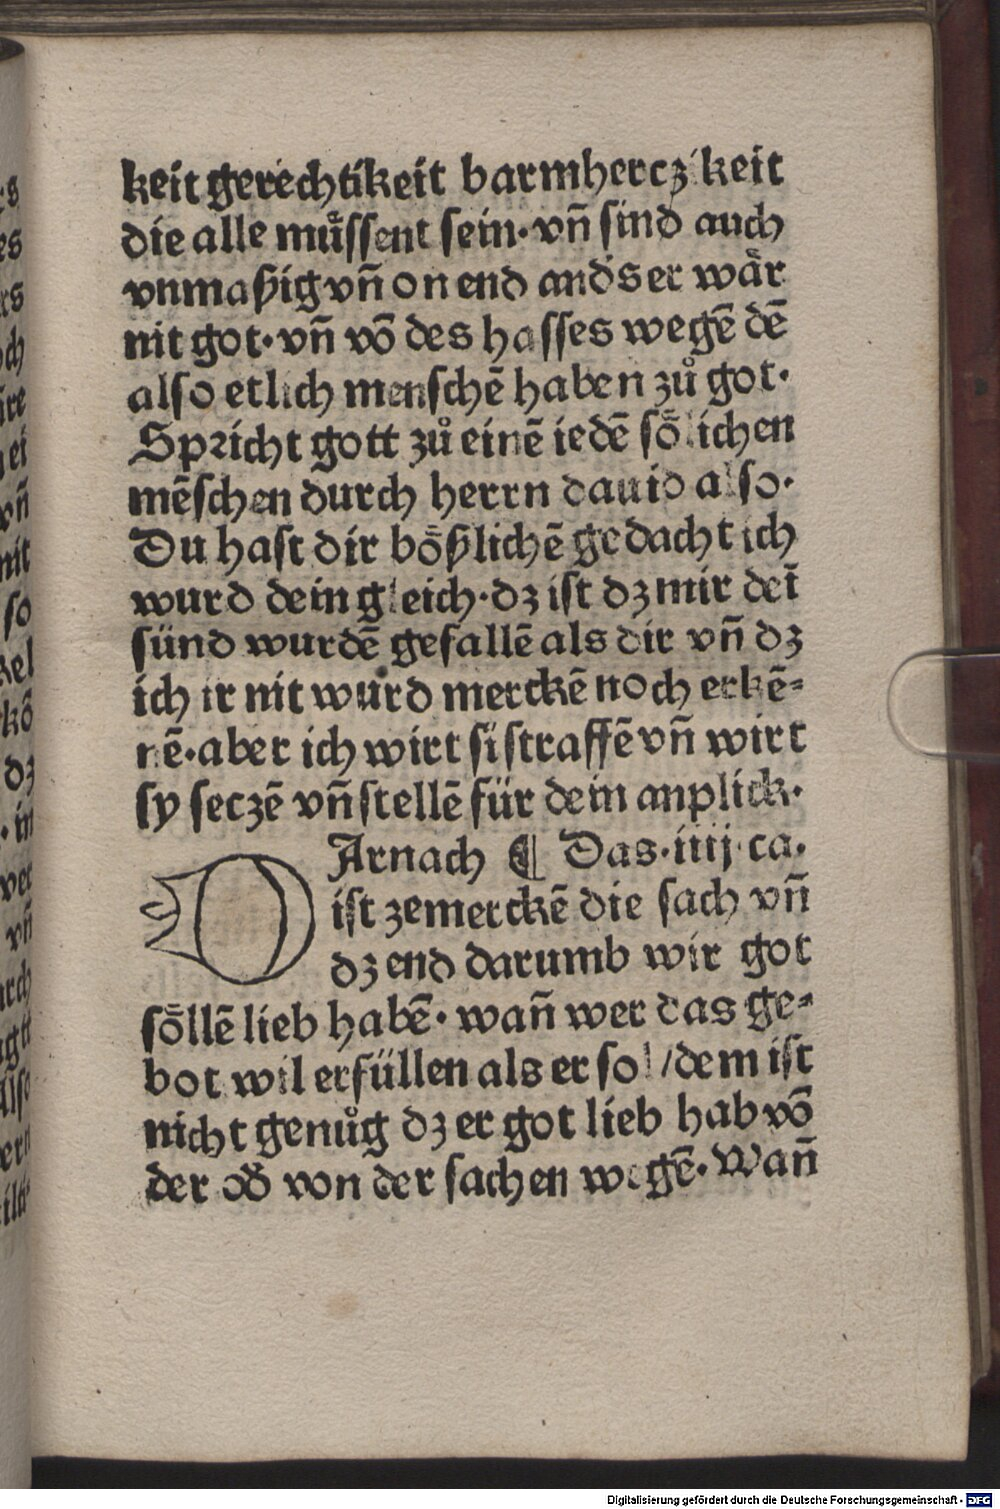 keit gerechtikeit barmherczikeit
die alle můssent sein·vn̄ sind auch
vnmaßig vn̄ on end and̕s er wår
nit got·vn̄ vō des hasses wegē dē
also etlich menschē haben zů got·
Spricht gott zů einē iedē sőlichen
mēschen durch herrn dauid also·
Du hast dir bőßlichē gedacht ich
wurd dein gleich·dz ist dz mir deī
sünd wurdē gefallē als dir vn̄ dz
ich ir nit wurd merckē noch erkē⸗
nē·aber ich wirt si straffē vn̄ wirt
sy seczē vn̄ stellē für dein anplick·
DArnach ¶ Das·iiij·ca·
ist zemerckē die sach vn̄
dz end darumb wir got
sőllē lieb habē·wan̄ wer das ge⸗
bot wil erfüllen als er sol/dem ist
nicht genůg dz er got lieb hab vō
der od̕ von der sachen wegē·Wan̄
Digitalisierung gefördert durch die Deutsche Forschungsgemeinschaft - DFG